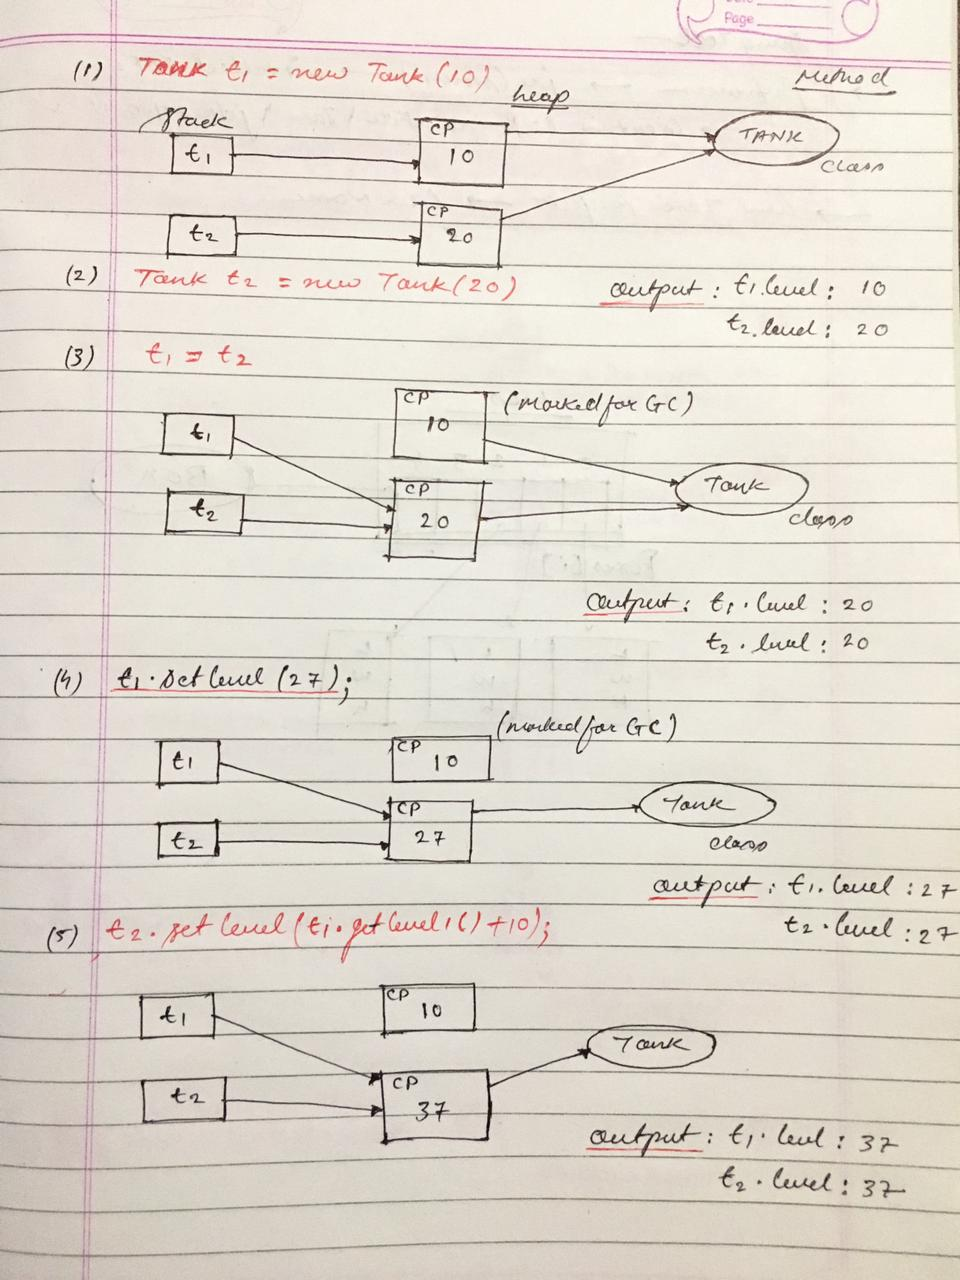 Page
(1) Tank t1 = new Tank(10)
Method
heap
stack
CP
TANK
t1
10
class
CP
t2
20
(2) Tank t2 = new Tank(20)
output : t1.level : 10
t2.level : 20
(3) t1 = t2
CP
(marked for GC)
t1
10
Tank
CP
t2
20
class
output : t1.level : 20
t2.level : 20
(4) t1.setlevel(27);
(marked for GC)
CP
t1
10
CP
Tank
t2
27
class
output : t1.level : 27
(5) t2.setlevel(t1.getlevel()+10);
t2.level : 27
CP
t1
10
Tank
CP
t2
37
output : t1.level : 37
t2.level : 37